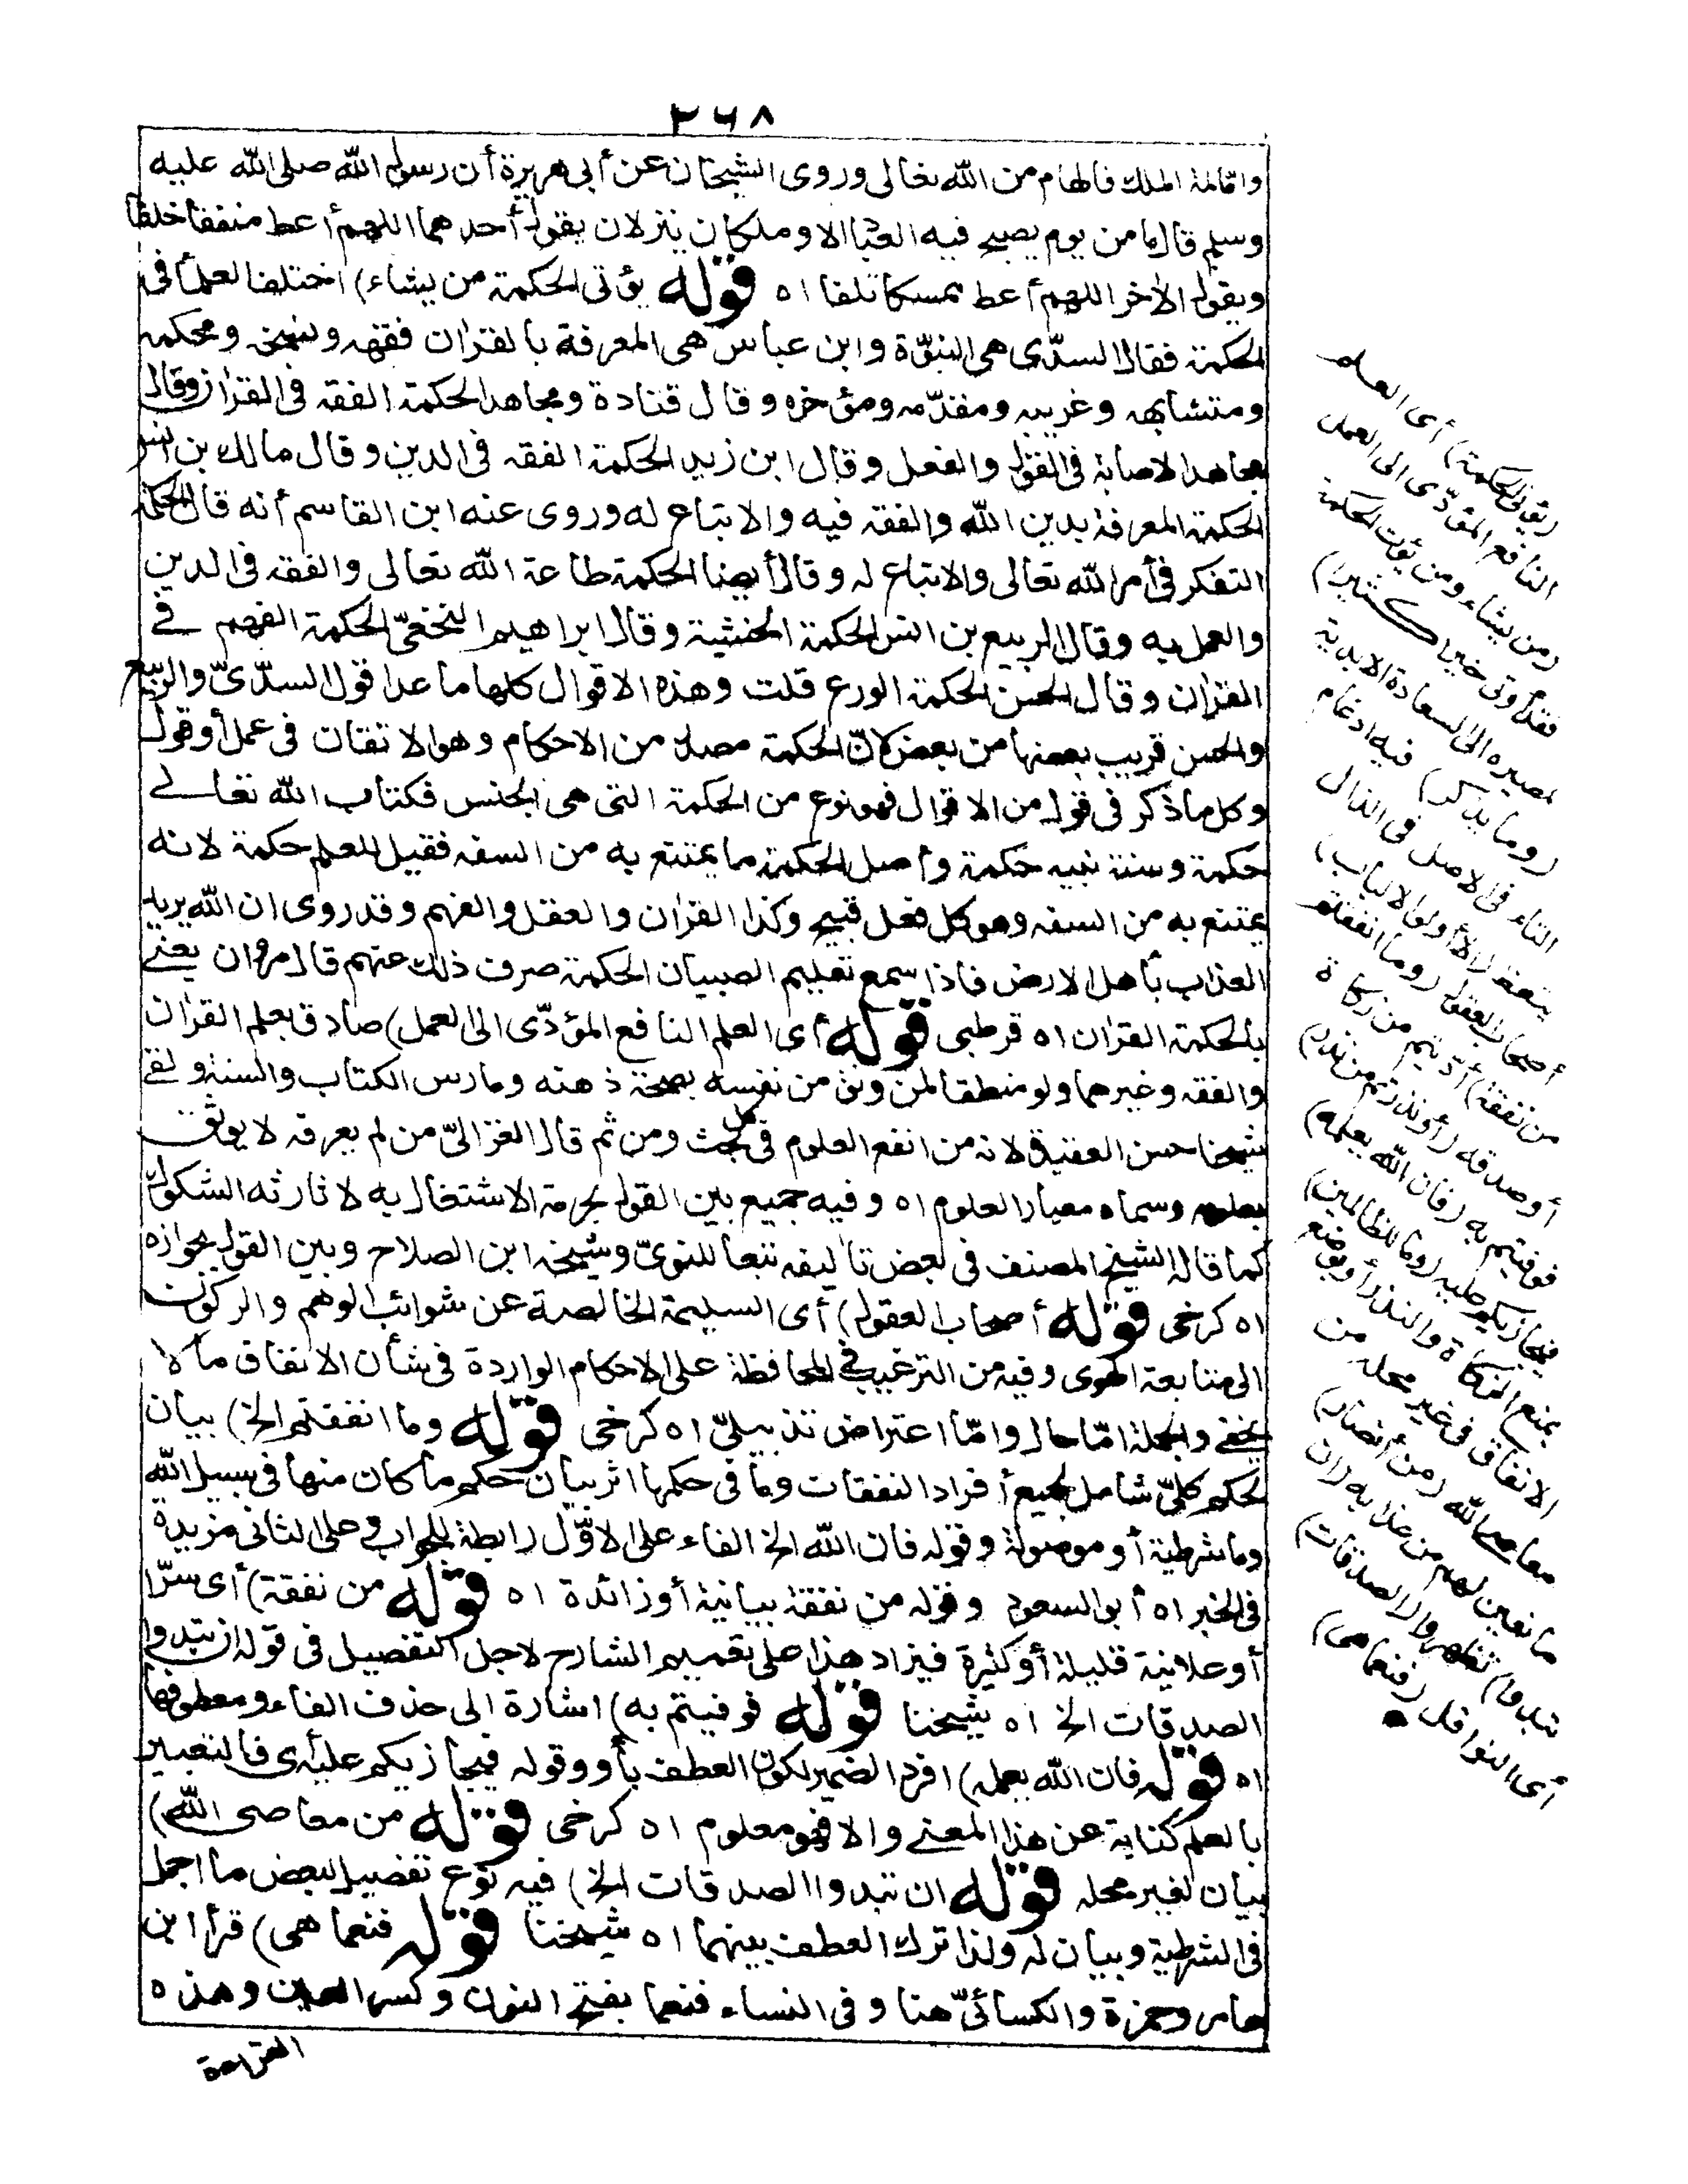 ٢٦٨
وامّالمة الملك فالهام من الله تعالى وروى الشيخان عن أبى هريرة أن رسول الله صلى الله عليه
وسلم قال ما من يوم يصبح فيه العباد الا وملكان ينزلان يقول أحدهما اللهم أعط منفقا خلفا
ويقول الآخر اللهم أعط ممسكا تلفا اه قوله يؤتى الحكمة من يشاء) اختلف العلماء فى
الحكمة فقال السدّى هى النبوّة وابن عباس هى المعرفة بالقرآن فقهه ونسخه ومحكمه
ومتشابهه وغريبه ومقدّمه ومؤخره وقال قتادة ومجاهد الحكمة الفقه فى القرآن وقال
مجاهد الاصابة فى القول والفعل وقال ابن زيد الحكمة الفقه فى الدين وقال مالك بن أنس
الحكمة المعرفة بدين الله والفقه فيه والاتباع له وروى عنه ابن القاسم أنه قال الحكمة
التفكر فى أمر الله تعالى والاتباع له وقال أيضا الحكمة طاعة الله تعالى والفقه فى الدين
والعمل به وقال الربيع بن انس الحكمة الخشية وقال ابراهيم النخعىّ الحكمة الفهم فى
القرآن وقال الحسن الحكمة الورع قلت وهذه الاقوال كلها ما عدا قول السدّىّ والربيع
والحسن قريب بعضها من بعض لانّ الحكمة مصدر من الاحكام وهو الاتقان فى عمل أو قول
وكل ما ذكر فى قوله من الاقوال فهو نوع من الحكمة التى هى الجنس فكتاب الله تعالى
حكمة وسنة نبيه حكمة وأصل الحكمة ما يمتنع به من السفه فقيل للعلم حكمة لانه
يمتنع به من السفه وهو كل فعل قبيح وكذا القرآن والعقل والفهم وقد روى ان الله يريد
العذاب بأهل الارض فاذا سمع تعليم الصبيان الحكمة صرف ذلك عنهم قال مروان يعنى
بالحكمة القرآن اه قرطبى قوله أى العلم النافع المؤدّى الى العمل) صادق بعلم القرآن
والفقه وغيرهما ولو منطقا لمن وثق من نفسه بصحة ذهنه ومارس الكتاب والسنة ولقى
شيخا حسن العقيدة لانه من انفع العلوم فى كل بحث ومن ثم قال الغزالىّ من لم يعرفه لا يوثق
بعلمه وسماه معيار العلوم اه وفيه جميع بين القول بحرمة الاشتغال به لاثارته الشكوك
كما قاله الشيخ المصنف فى بعض تآليفه تبعا للنووىّ وشيخه ابن الصلاح وبين القول بجوازه
اه كرخى قوله أصحاب العقول) أى السليمة الخالصة عن شوائب الوهم والركون
الى متابعة الهوى وفيه من الترغيب فى المحافظة على الاحكام الواردة فى شأن الانفاق ما لا
يخفى والجملة امّا حال وامّا اعتراض تذييلىّ اه كرخى قوله وما انفقتم الخ) بيان
لحكم كلىّ شامل لجميع أفراد النفقات وما فى حكمها اثر بيان حكم ما كان منها فى سبيل الله
وما شرطية أو موصولة وقوله فان الله الخ الفاء على الاوّل رابطة للجواب وعلى الثانى مزيدة
فى الخبر اه أبو السعود وقوله من نفقة بيانية أو زائدة اه قوله من نفقة) أى سرّا
أو علانية قليلة أو كثيرة فيزاد هذا على تعميم الشارح لاجل التفصيل فى قوله ان تبدوا
الصدقات الخ اه شيخنا قوله فوفيتم به) اشارة الى حذف الفاء ومعطوفها
اه قوله فان الله يعلمه) افرد الضمير لكون العطف بأو وقوله فيجازيكم عليه أى فالتعبير
بالعلم كناية عن هذا المعنى والا فهو معلوم اه كرخى قوله من معاصى الله)
بيان لغير محله قوله ان تبدوا الصدقات الخ) فيه نوع تفصيل لبعض ما اجمل
فى الشرطية وبيان له ولذا ترك العطف بينهما اه شيخنا قوله فنعما هى) قرأ ابن
عامر وحمزة والكسائىّ هنا وفى النساء فنعما بفتح النون وكسر العين وهذه
القراءة
(يؤتى الحكمة) أى العلم
النافع المؤدّى الى العمل
(من يشاء ومن يؤت الحكمة
فقد أوتى خيرا كثيرا)
لمصيره الى السعادة الابدية
(وما يذكر) فيه ادغام
التاء فى الاصل فى الذال
يتعظ (الا أولوا الالباب)
أصحاب العقول (وما انفقتم
من نفقة) أدّيتم من زكاة
أو صدقة (أو نذرتم من نذر)
فوفيتم به (فان الله يعلمه)
فيجازيكم عليه (وما للظالمين)
بمنع الزكاة والنذر أو بوضع
الانفاق فى غير محله من
معاصى الله (من أنصار)
مانعين لهم من عذابه (ان
تبدوا) تظهروا (الصدقات)
أى النوافل (فنعما هى)